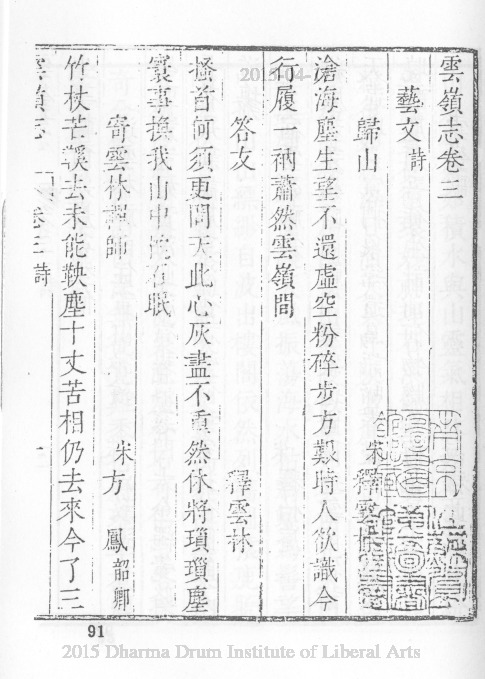 雲嶺志卷三
藝文 詩
歸山 宋釋雲林
滄海塵生望不還虛空粉碎步方艱時人欲識今
行履一衲蕭然雲嶺間
答友 釋雲林
搔首何須更問天此心灰盡不重然休將瑣瑣塵
寰事換我山中枕石眠
寄雲林禪師 宋方 鳳韶卿
竹杖芒鞋去未能軟塵十丈苦相仍去來今了三
雲嶺志 卷三 詩
2015-04-
91
2015 Dharma Drum Institute of Liberal Arts